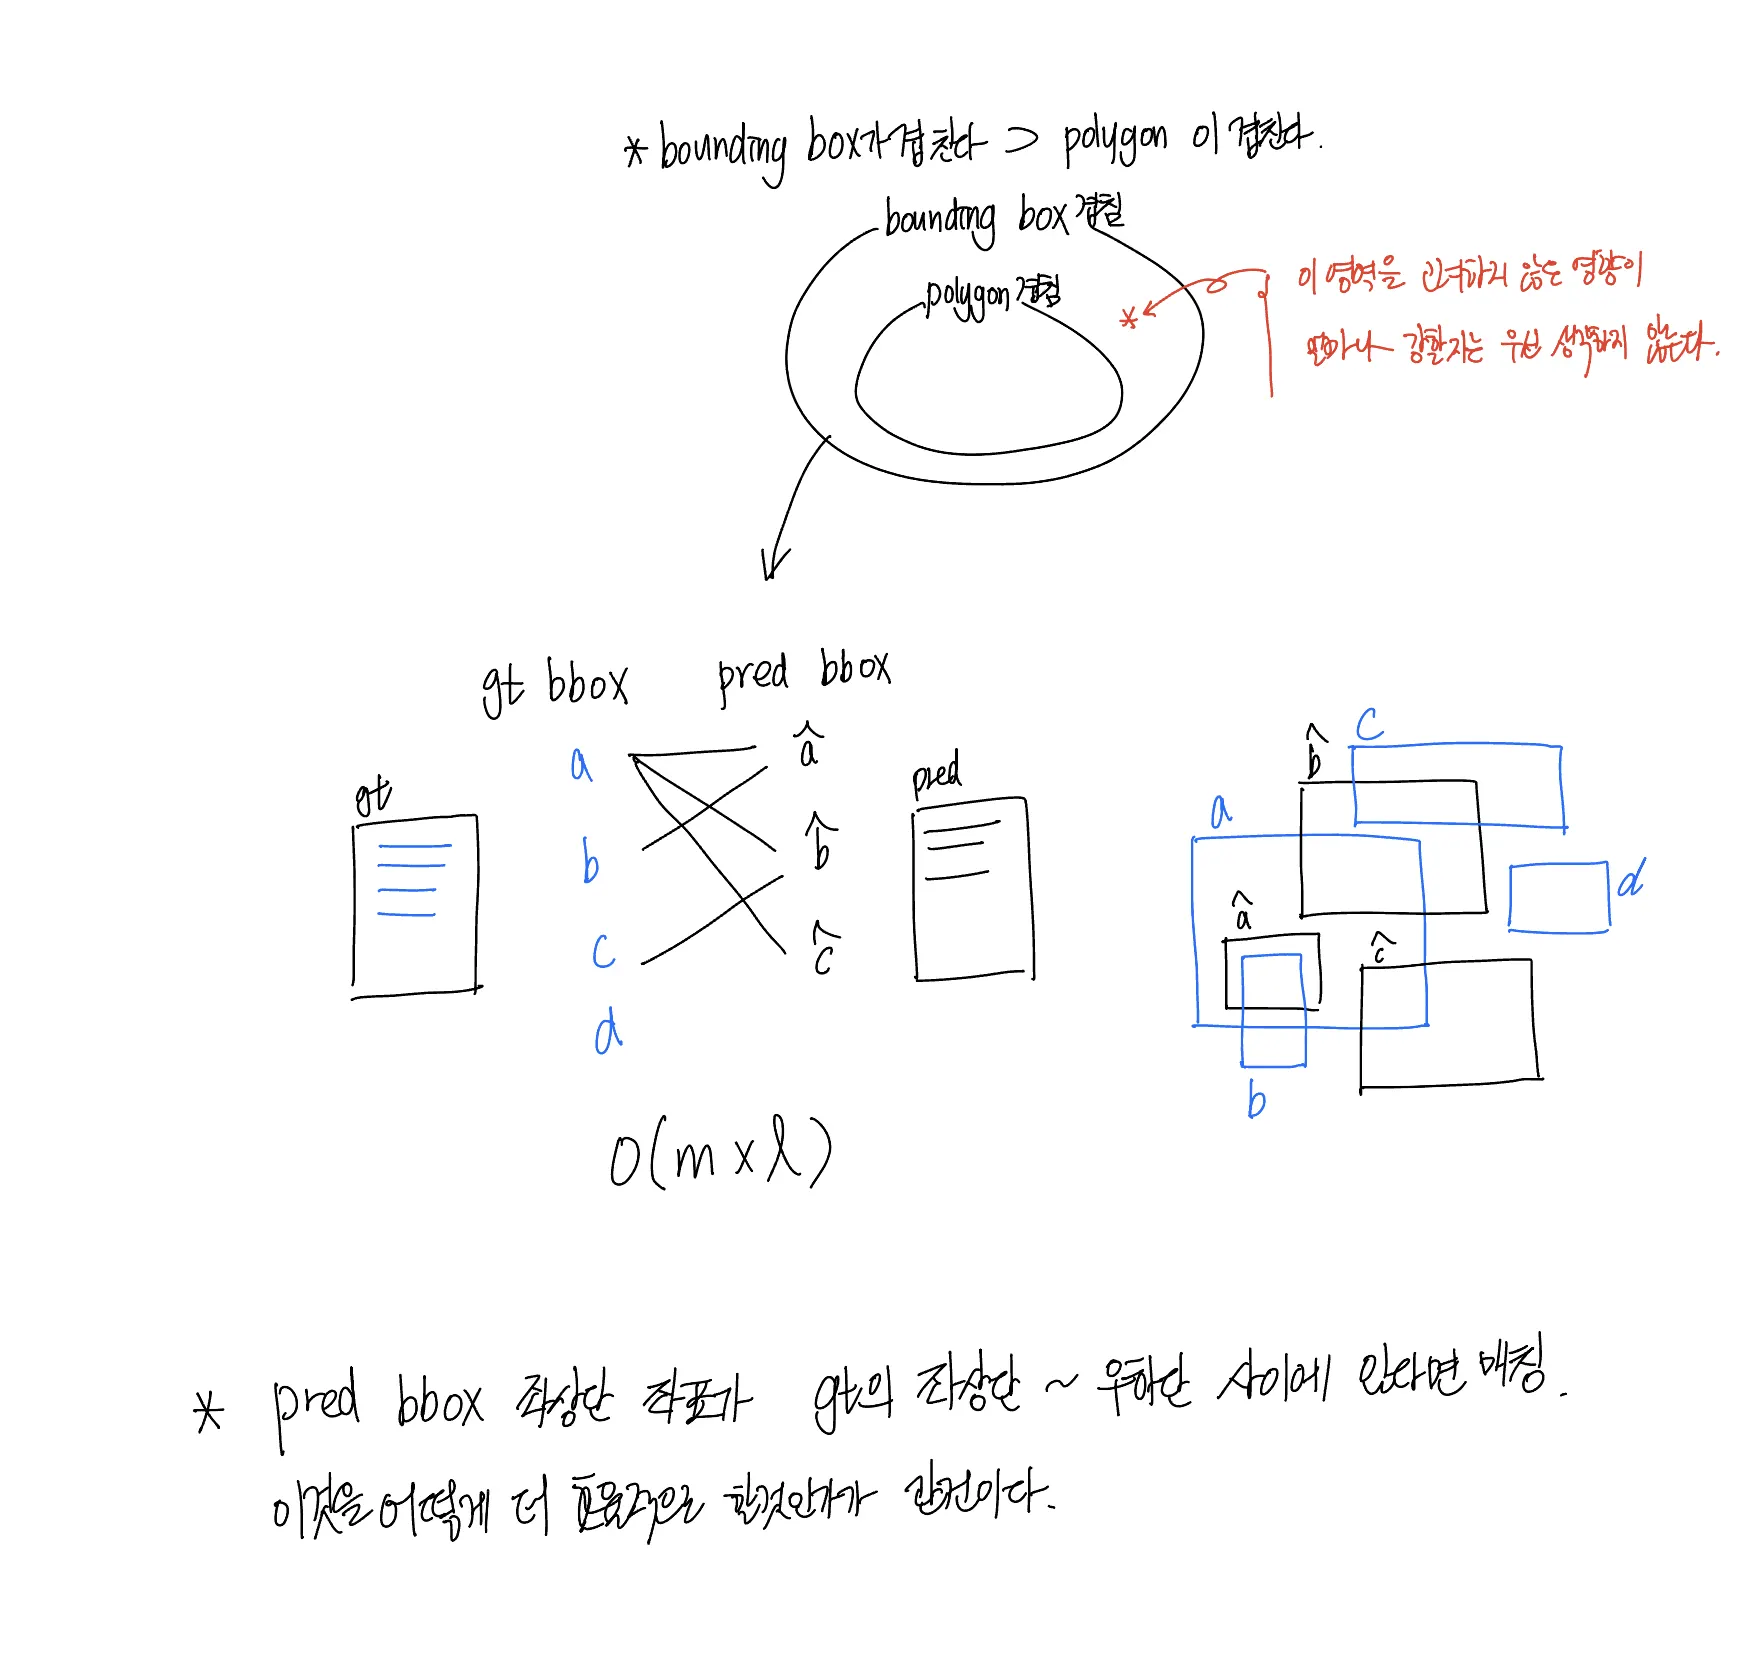 * bounding box가 겹친다 ⊃ polygon 이 겹친다.
bounding box 겹침
polygon 겹침
이 영역을 고려하지 않는 영향이
*
얼마나 강할지는 우선 생각하지 않는다.
gt bbox pred bbox
a â
b b̂
c ĉ
d
gt
pred
c
b̂
a
d
â
ĉ
b
O(m x l)
* pred bbox 좌상단 좌표가 gt의 좌상단 ~ 우하단 사이에 있다면 매칭.
이것을 어떻게 더 효율적으로 할것인가가 관건이다.